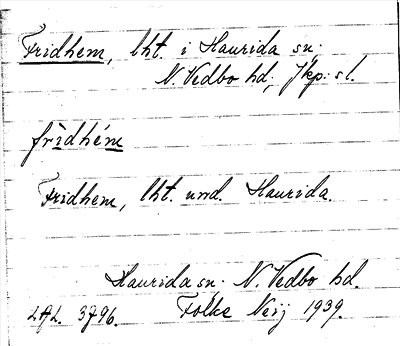 Fridhem, lht. i Haurida sn.
N. Vedbo hd., Jkp:s l.
frìdhém
Fridhem, lht. und. Haurida.
Haurida sn. N. Vedbo hd.
LAL. 3796. Folke Neij 1939.